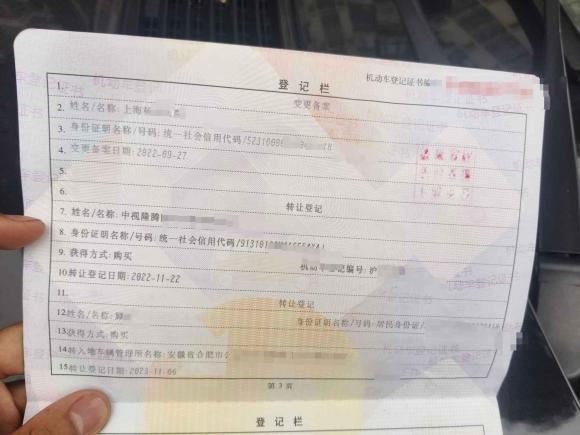 机动车登记证书编
登记栏
1. 变更备案
2. 姓名/名称: 上海
3. 身份证明名称/号码: 统一社会信用代码/523100
4. 变更备案日期: 2022-09-27
5.
6. 转让登记
7. 姓名/名称: 中视隆腾
8. 身份证明名称/号码: 统一社会信用代码/91310
9. 获得方式: 购买 机动车登记编号: 沪
10. 转让登记日期: 2022-11-22
11. 转让登记
12. 姓名/名称: 身份证明名称/号码: 居民身份证/
13. 获得方式: 购买
14. 转入地车辆管理所名称: 安徽省合肥市
15. 转让登记日期: 2023-11-06
第 3 页
登记栏